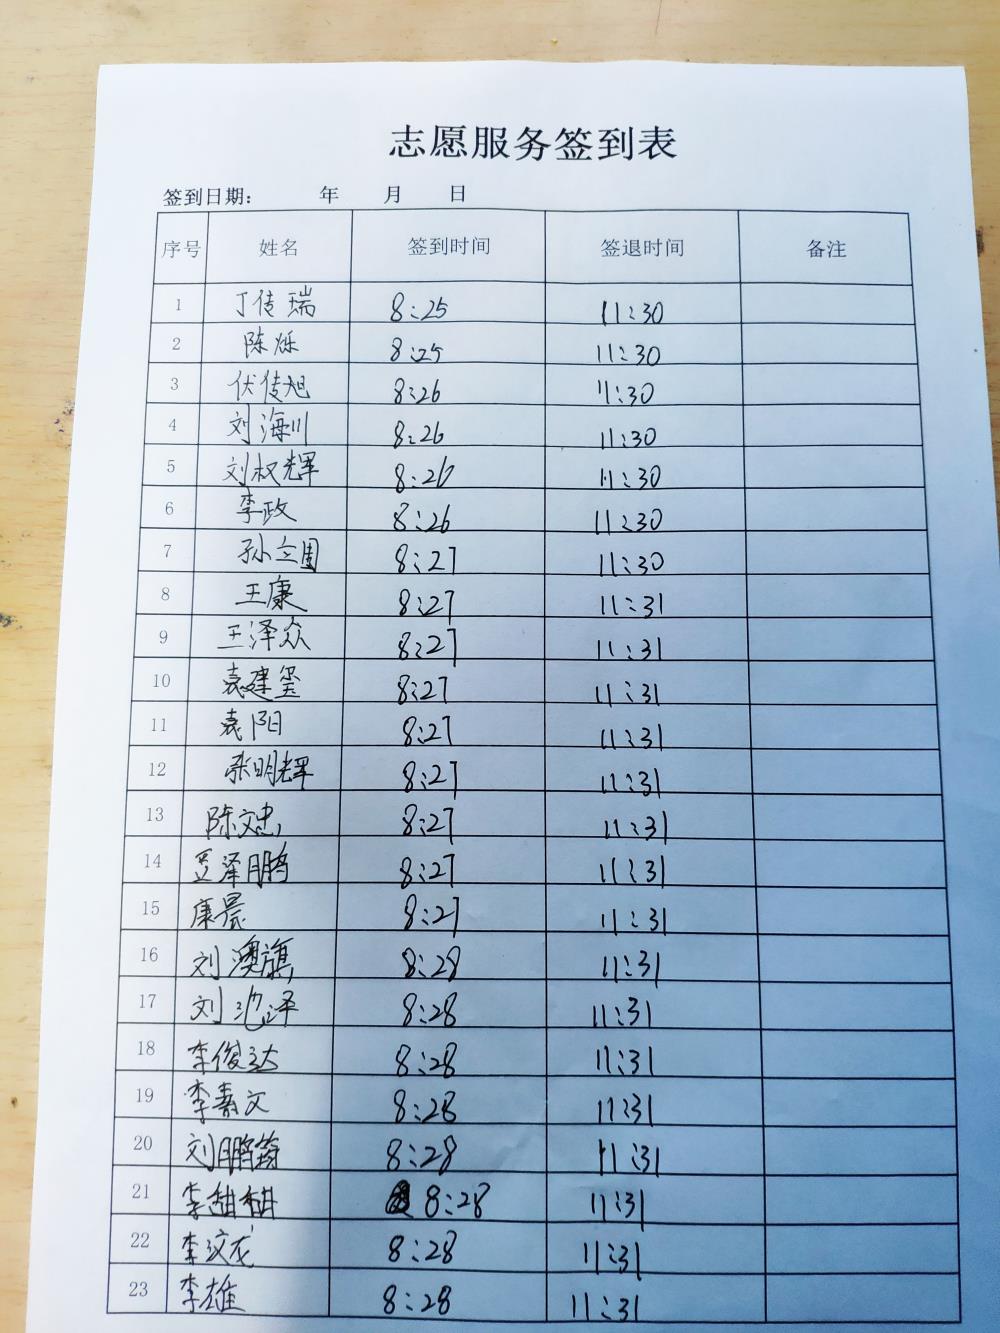 志愿服务签到表
签到日期: 年 月 日
序号 姓名 签到时间 签退时间 备注
1 丁传瑞 8:25 11:30
2 陈烁 8:25 11:30
3 伏传旭 8:26 11:30
4 刘海川 8:26 11:30
5 刘权辉 8:26 11:30
6 李政 8:26 11:30
7 孙立国 8:27 11:30
8 王康 8:27 11:31
9 王泽众 8:27 11:31
10 袁建玺 8:27 11:31
11 袁阳 8:27 11:31
12 张明辉 8:27 11:31
13 陈文忠 8:27 11:31
14 泽鹏 8:27 11:31
15 康晨 8:27 11:31
16 刘澳旗 8:28 11:31
17 刘泽 8:28 11:31
18 李俊达 8:28 11:31
19 李文 8:28 11:31
20 刘鹏 8:28 11:31
21 李甜甜 8:28 11:31
22 李汶龙 8:28 11:31
23 李雄 8:28 11:31